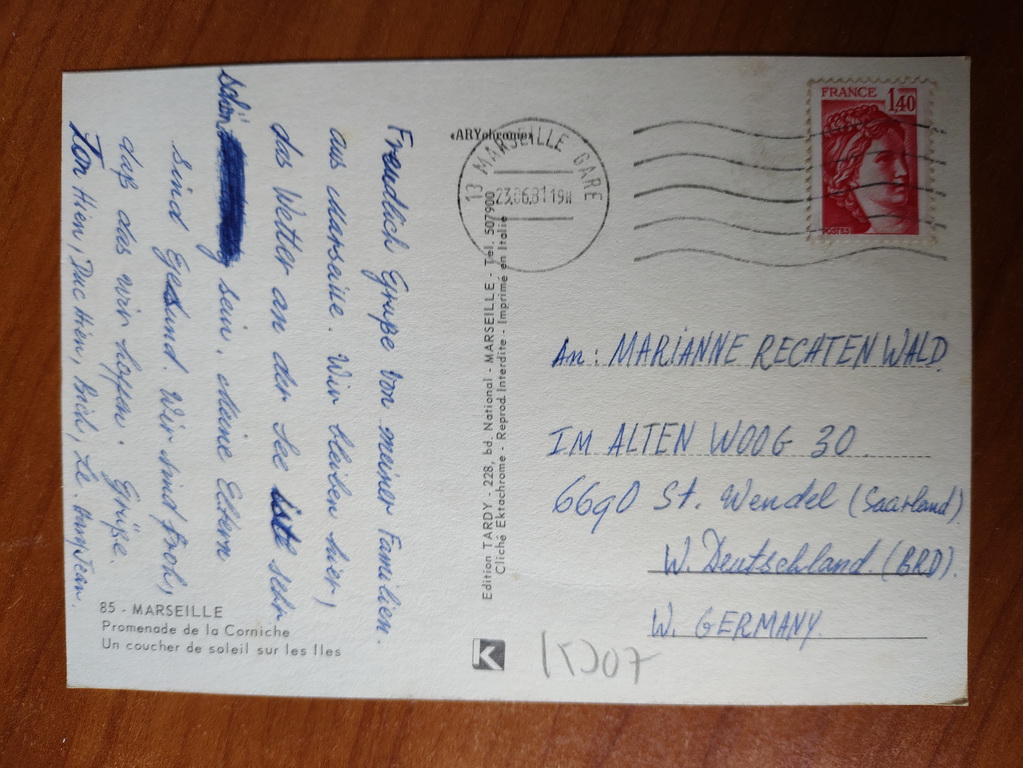 Freudlich Grupe von meiner Familien.
aus Marseille. Wir bleiben hier,
das Wetter an der See iste sehr
schön sein. Meine Eltern
sind Gesund. Wir sind froh,
daß das wir hoffen. Grüße.
Ton Hien, Duc Hien, Bich, Le
85 - MARSEILLE
Promenade de la Corniche
Un coucher de soleil sur les Iles
«ARYchrome»
Edition TARDY - 228, bd. National - MARSEILLE - Tél. 507900
Cliché Ektachrome - Reprod. Interdite - Imprimé en Italie
K
13 MARSEILLE GARE
23.06.81 19H
FRANCE
1,40
POSTES
An: MARIANNE RECHTENWALD
IM ALTEN WOOG 30.
6690 St. Wendel (Saarland)
W. Deutschland. (BRD).
W. GERMANY.